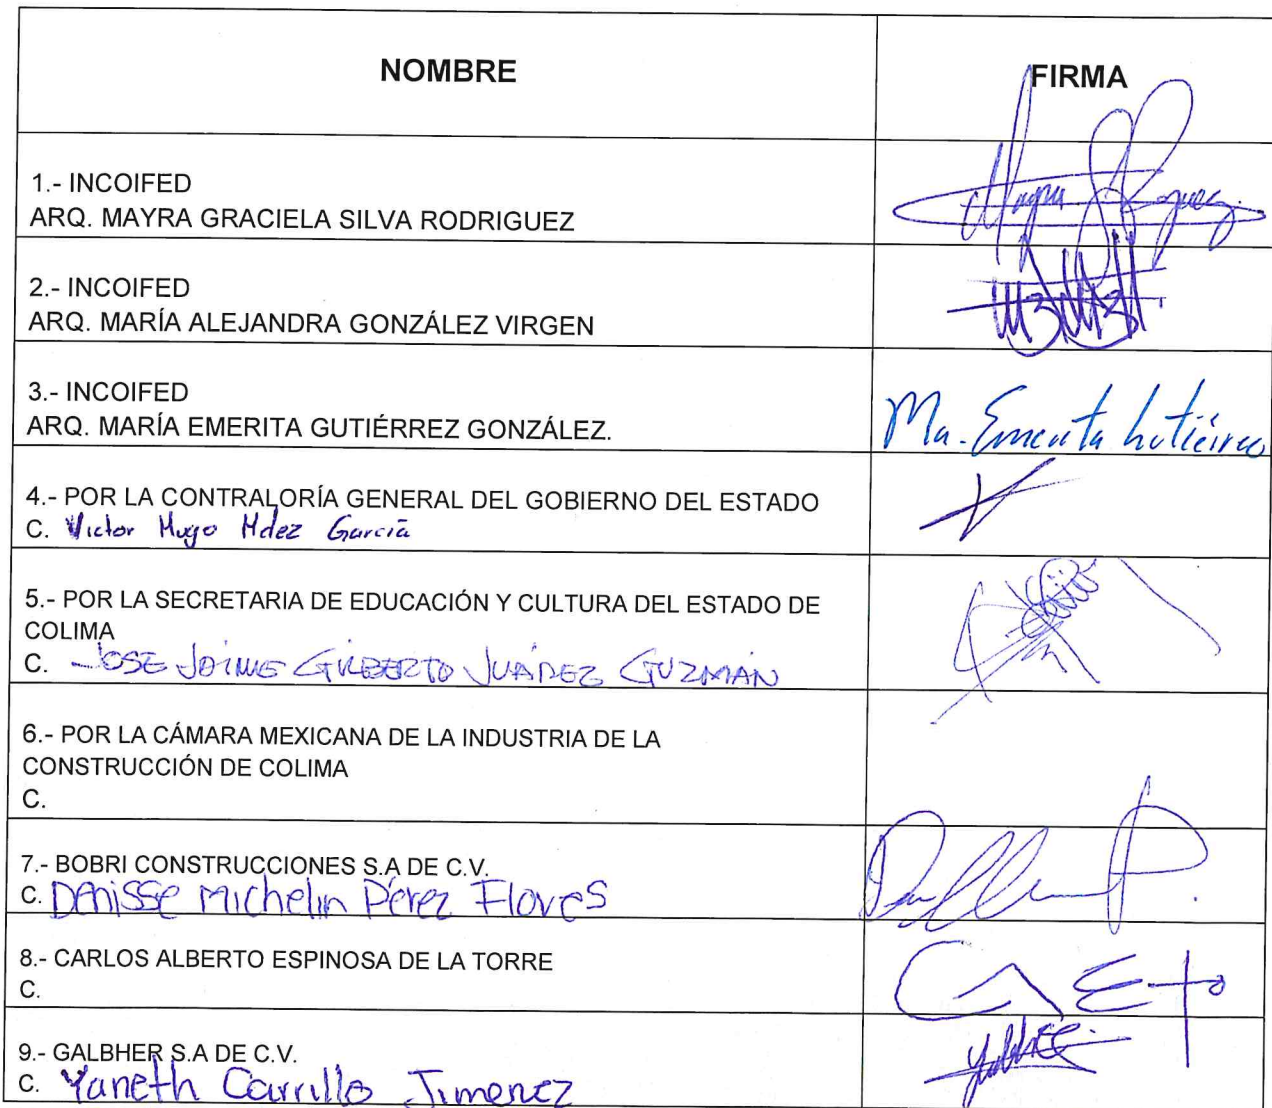 NOMBRE
FIRMA
1.- INCOIFED
ARQ. MAYRA GRACIELA SILVA RODRIGUEZ
2.- INCOIFED
ARQ. MARÍA ALEJANDRA GONZÁLEZ VIRGEN
3.- INCOIFED
ARQ. MARÍA EMERITA GUTIÉRREZ GONZÁLEZ.
Ma. Emerita Gutiérrez
4.- POR LA CONTRALORÍA GENERAL DEL GOBIERNO DEL ESTADO
C. Victor Hugo Hdez García
5.- POR LA SECRETARIA DE EDUCACIÓN Y CULTURA DEL ESTADO DE
COLIMA
C. JOSE JAIME GILBERTO JUÁREZ GUZMÁN
6.- POR LA CÁMARA MEXICANA DE LA INDUSTRIA DE LA
CONSTRUCCIÓN DE COLIMA
C.
7.- BOBRI CONSTRUCCIONES S.A DE C.V.
C. Denisse Michelin Pérez Flores
8.- CARLOS ALBERTO ESPINOSA DE LA TORRE
C.
9.- GALBHER S.A DE C.V.
C. Yaneth Carrillo Jimenez